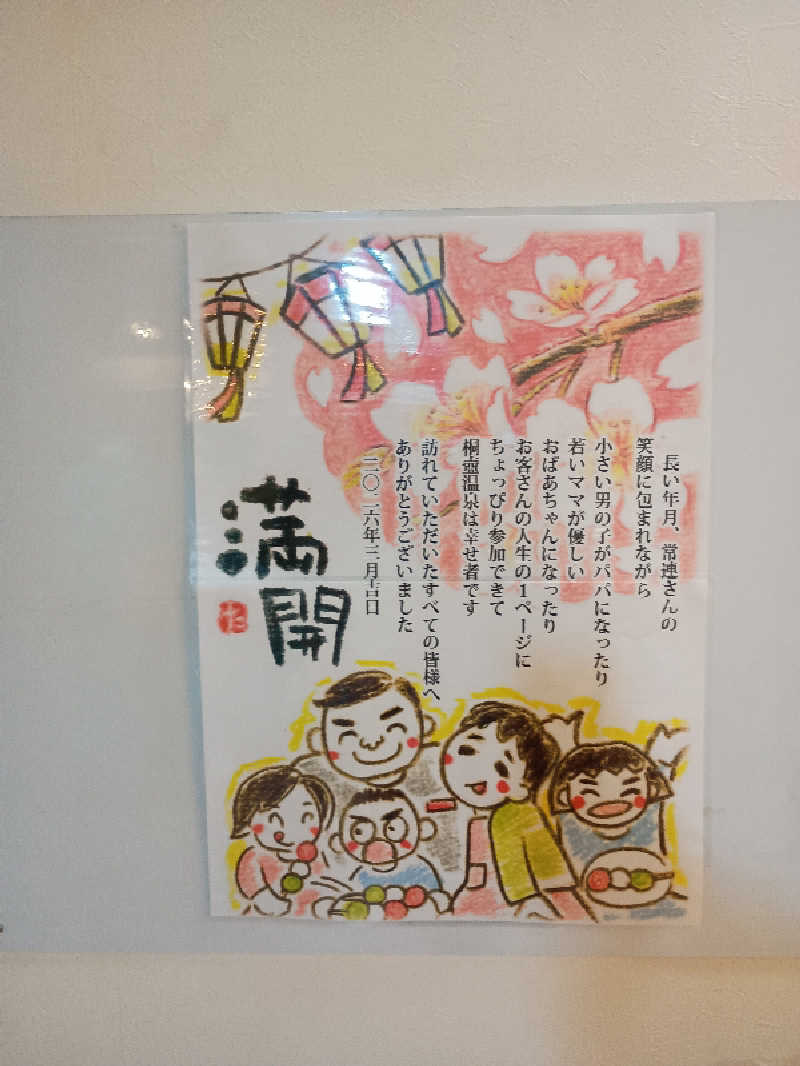 長い年月、常連さんの
笑顔に包まれながら
小さい男の子がパパになったり
若いママが優しい
おばあちゃんになったり
お客さんの人生の1ページに
ちょっぴり参加できて
桐壷温泉は幸せ者です
訪れていただいたすべての皆様へ
ありがとうございました
二〇二六年三月吉日
満開